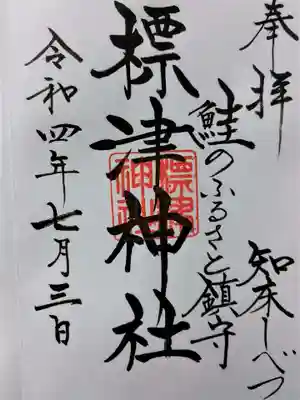 奉拝
知床しべつ
鮭のふるさと鎮守
標津神社
令和四年七月三日
標津神社